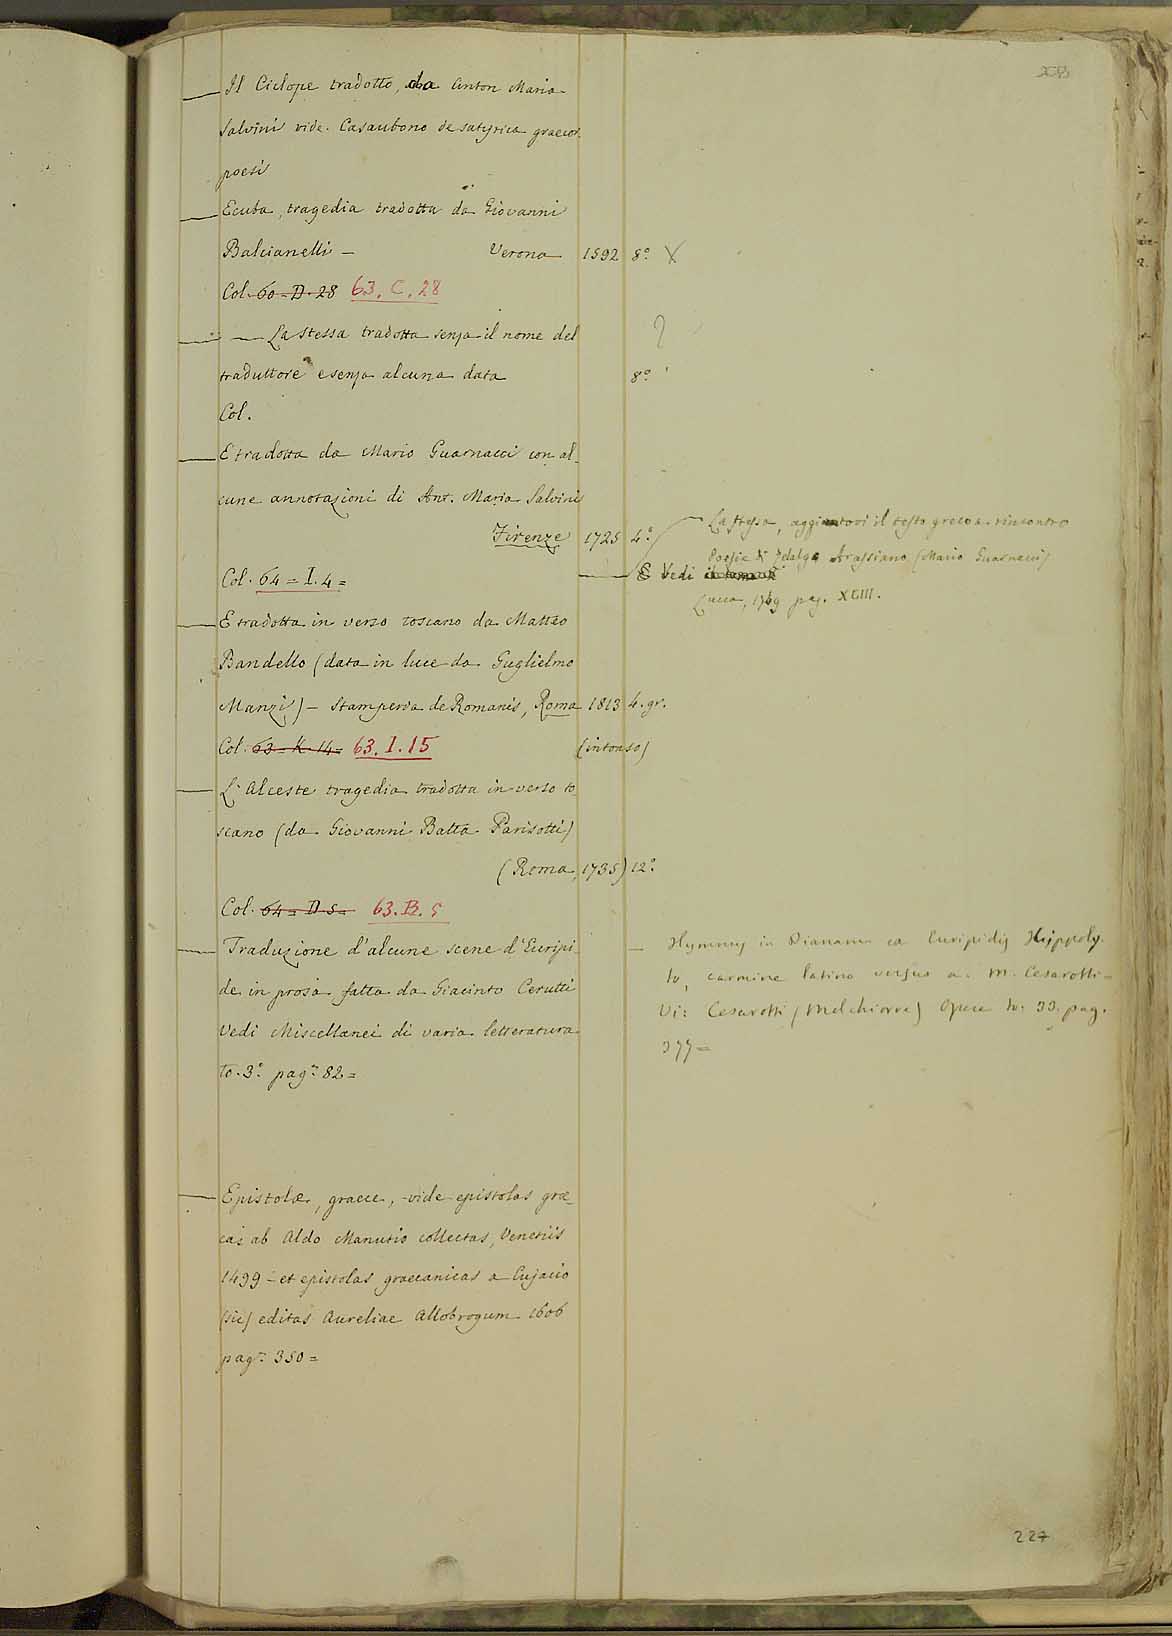 Il Ciclope tradotto, da Anton Maria
Salvini vide. Casaubono de satyrica graecor.
poesi
Ecuba, tragedia tradotta da Giovanni
Balcianelli — Verona 1592 8.º X
Col. 60 = D. 28 63. C. 28
— La stessa tradotta senza il nome del ?
traduttore e senza alcuna data 8.º
Col.
E tradotta da Mario Guarnacci con al-
cune annotazioni di Ant. Maria Salvini
Firenze 1725 4.º
Col. 64 = I. 4 =
La stessa, aggiuntovi il testo greco a rincontro
Vedi Poesie di Zelalgo Arassiano (Mario Guarnacci)
Lucca, 1769 pag. XLIII.
E tradotta in verso toscano da Matteo
Bandello (data in luce da Guglielmo
Manzi) — Stamperia de Romanis, Roma 1813 4. gr.
Col. 63 = K. 14 = 63. I. 15 (intonso)
L'Alceste tragedia tradotta in verso to-
scano (da Giovanni Batta Parisotti)
(Roma, 1735) 12.º
Col. 64 = D. 5 = 63. B. 5
Traduzione d'alcune scene d'Euripi-
de in prosa fatta da Giacinto Cerutti
Vedi Miscellanei di varia letteratura
to. 3.º pag.ª 82 =
— Hymnus in Dianam ex Euripidis Hippoly-
to, carmine latino versus a. M. Cesarotti =
Vi: Cesarotti (Melchiorre) Opere to: 33. pag.
Epistolæ, graece, vide epistolas græ-
cas ab Aldo Manutio collectas, Venetiis
1499 — et epistolas graecanicas a Cujacio
(sic) editas Aureliae Allobrogum 1606
pag.ª 350 =
227